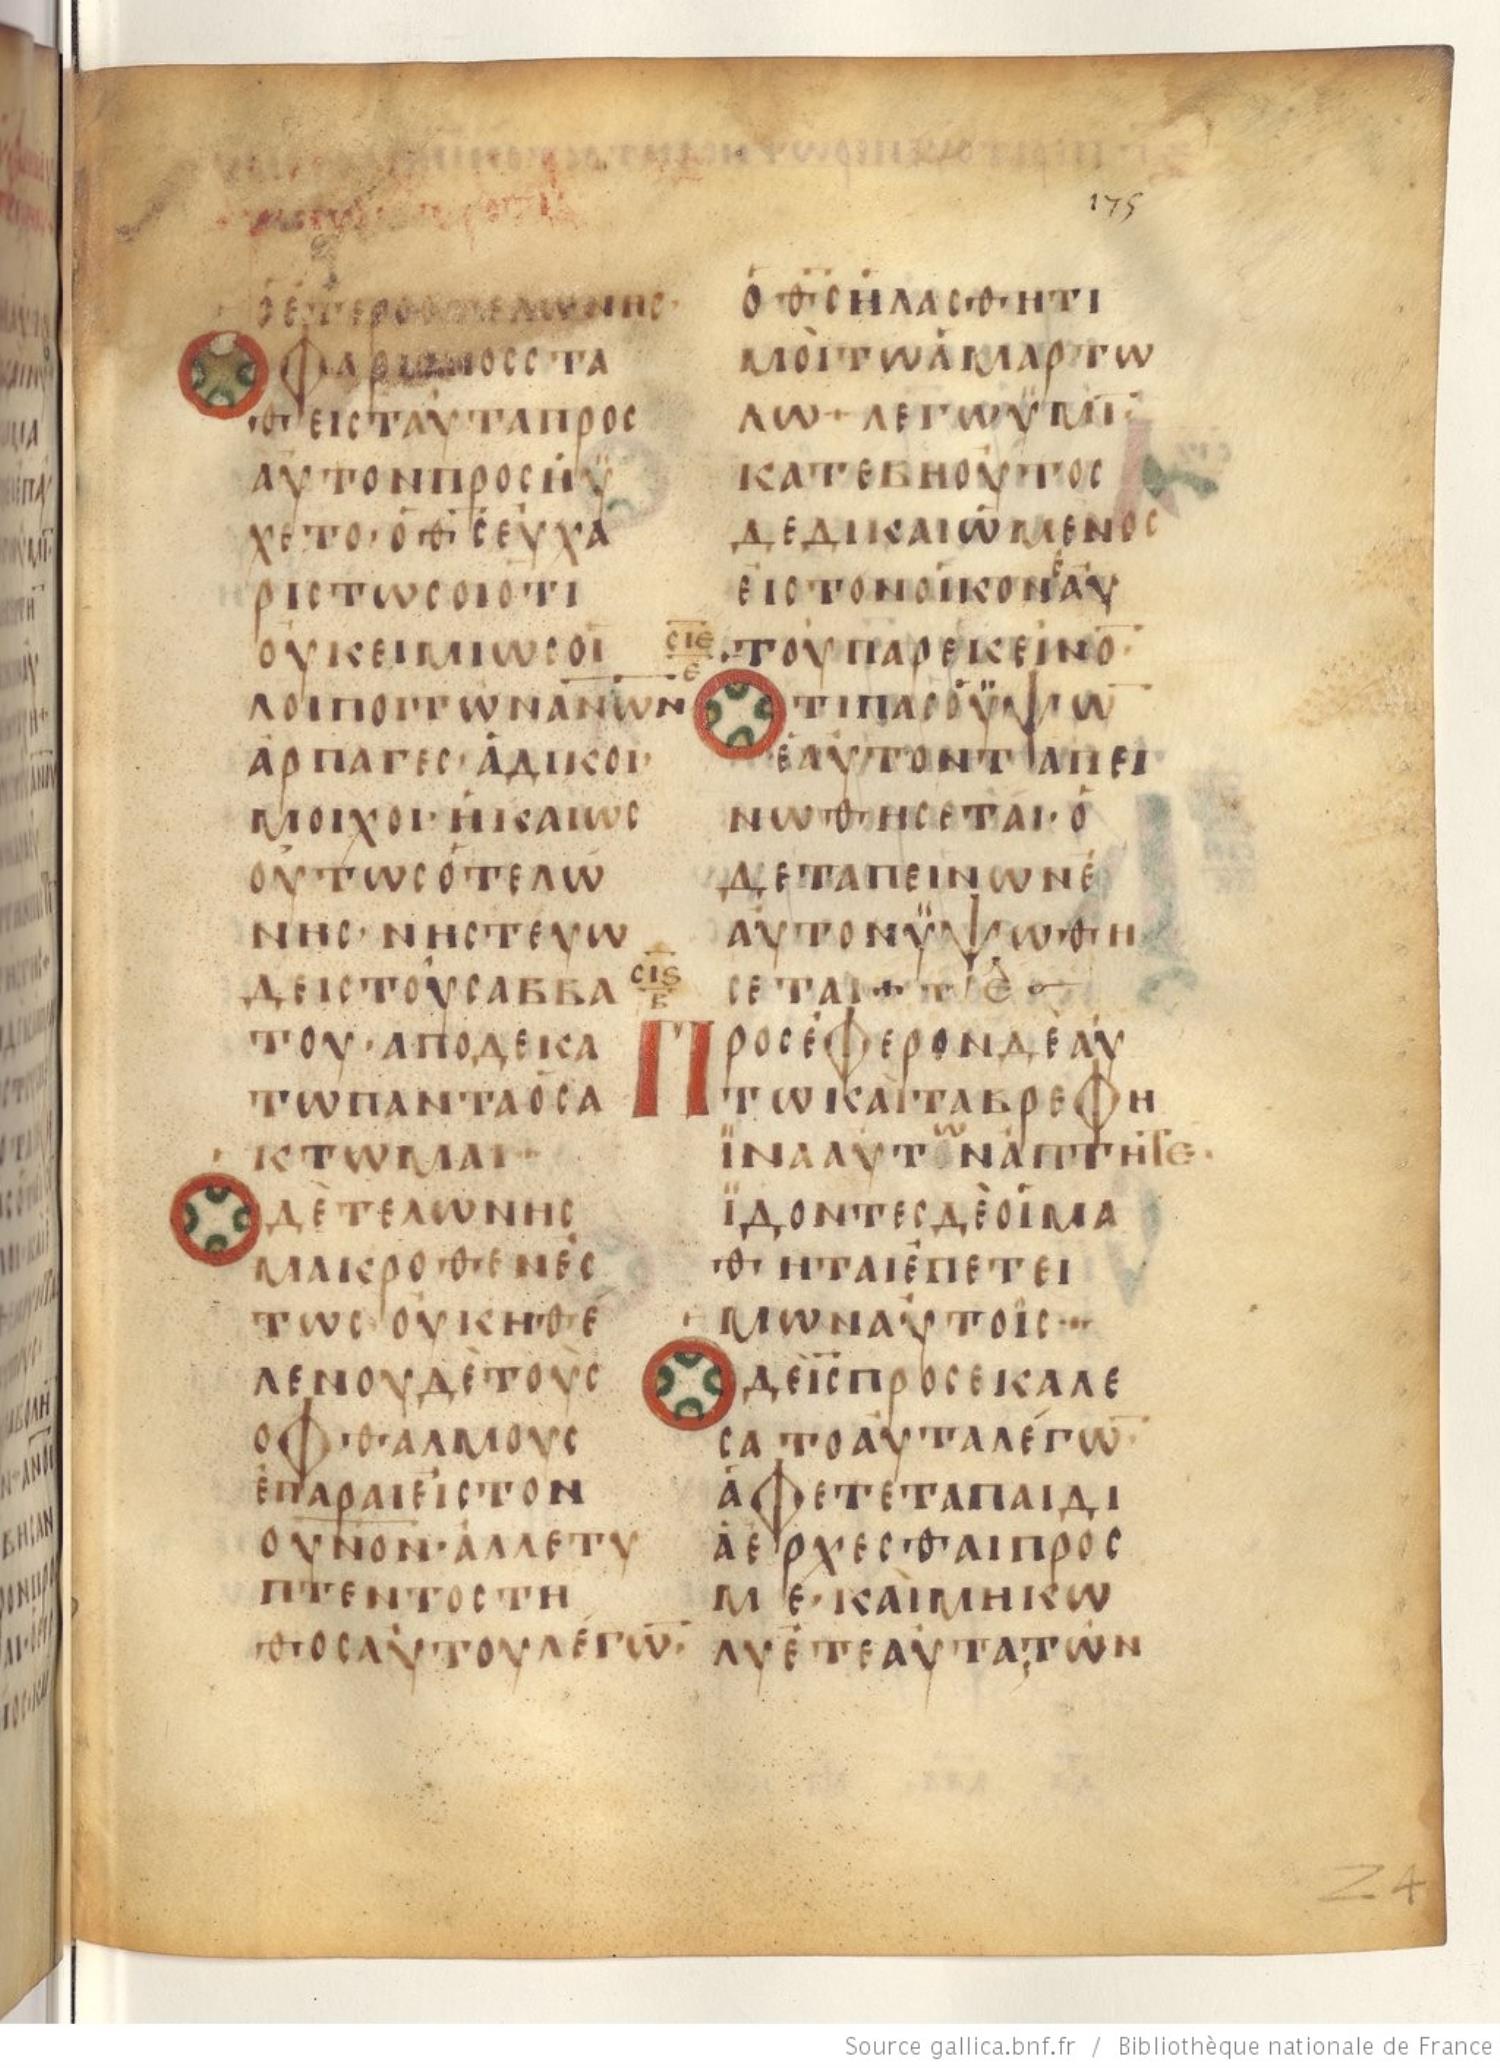 175
ὁ ἕτερος τελώνης·
Ὁ Φαρισαιος στα
θεις ταυτα προς
αυτον προσηυ
χετο· ὁ θ̅ς̅ ευχα
ριστω σοι οτι
ουκ ειμι ωσ οι
λοιποι των α̅ν̅ω̅ν̅
αρπαγες· αδικοι·
μοιχοι· η και ως
ουτως ο τελω
νης· νηστευω
δεις του σαββα
του· αποδεκα
τω παντα οσα
κτωμαι·
Ο δε τελωνης
μακροθεν ες
τως· ουκ ηθε
λεν ουδε τους
οφθαλμους
επαραι εις τον
ο̅υ̅ν̅ο̅ν̅· αλλ ετυ
πτεν το στη
θος αυτου λεγω̅·
ο θ̅ς̅ ηλασθητι
μοι τω αμαρτω
λω + λεγω υμι̅·
κατεβη ουτος
δεδικαιωμενος
εις τον οικον εαυ
σ̅ι̅ε̅ ε
του παρ εκεινο̅·
Οτι πας ο υψω̅
εαυτον ταπει
νωθησεται· ο
δε ταπεινων ε
αυτον υψωθη
σεται + τ̅ε̅
σ̅ι̅ϛ̅ β
Προσεφερον δε αυ
τω και τα βρεφη
ϊνα αυτων απτητε·
ϊδοντες δε οι μα
θηται επετει
μων αυτοις·
Ο δε ι̅ς̅ προσεκαλε
σατο αυτα λεγω̅·
αφετε τα παιδι
α ερχεσθαι προς
με· και μη κω
λυετε αυτα, των
24
Source gallica.bnf.fr / Bibliothèque nationale de France